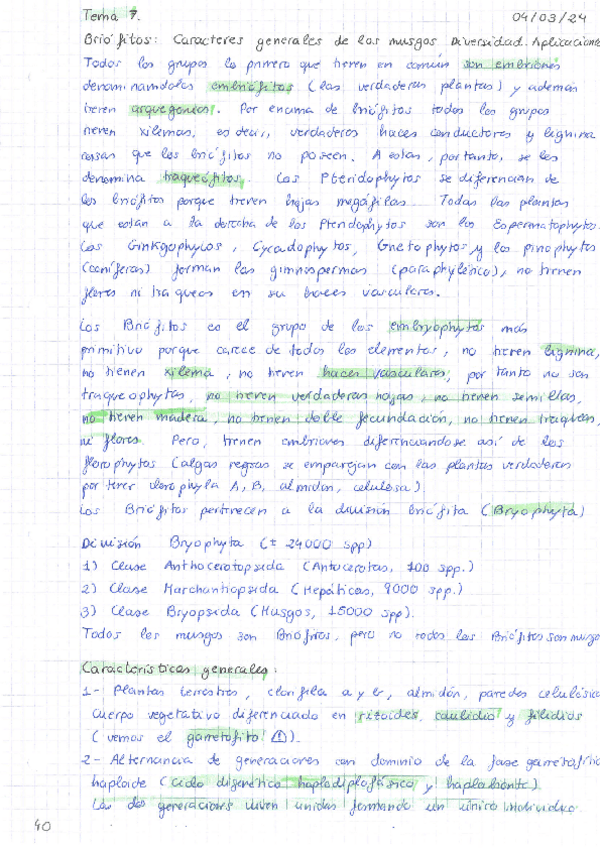 Tema 7. 04/03/24
Briófitos: Caracteres generales de los musgos. Diversidad. Aplicaciones
Todos los grupos lo primero que tienen en común son embriones
denominandolos embriófitos (las verdaderas plantas) y además
tienen arquegonios. Por encima de briófitos todos los grupos
tienen xilemas, es decir, verdaderos haces conductores y lignina
cosas que los briófitos no poseen. A estas, por tanto, se les
denomina traqueófitos. Los Pteridophytos se diferencian de
los briófitos porque tienen hojas megáfilas. Todas las plantas
que están a la derecha de los Pteridophytos son los Espermatophytos.
Los Ginkgophycos, Cycadophytos, Gnetophytos y los pinophytos
(coníferas) forman las gimnospermas (paraphylético), no tienen
flores ni traqueas en su haces vasculares.
Los Briófitos es el grupo de los embryophytos más
primitivo porque carece de todos los elementos, no tienen lignina,
no tienen xilema, no tienen haces vasculares, por tanto no son
traqueophytos, no tienen verdaderas hojas, no tienen semillas,
no tienen madera, no tienen doble fecundación, no tienen traqueas,
ni flores. Pero, tienen embriones diferenciandose así de los
clorophytos (algas verdes se emparejan con las plantas verdaderas
por tener clorophyla A, B, almidón, celulosa)
Los Briófitos pertenecen a la división briófita (Bryophyta)
División Bryophyta (± 24000 spp)
1) Clase Anthocerotopsida (Antocerotas, 100 spp.)
2) Clase Marchantiopsida (Hepáticas, 9000 spp.)
3) Clase Bryopsida (Musgos, 15000 spp).
Todos los musgos son Briófitos, pero no todos los Briófitos son musgos
Características generales:
1- Plantas terrestres, clorofila a y b, almidón, paredes celulósicas
Cuerpo vegetativo diferenciado en rizoides, caulidio y filidios
(vemos el gametofito (!)).
2- Alternancia de generaciones con dominio de la fase gametofítica
haploide (ciclo digenético haplodiplofásico y haplobionte)
Las dos generaciones viven unidas formando un único individuo.
40